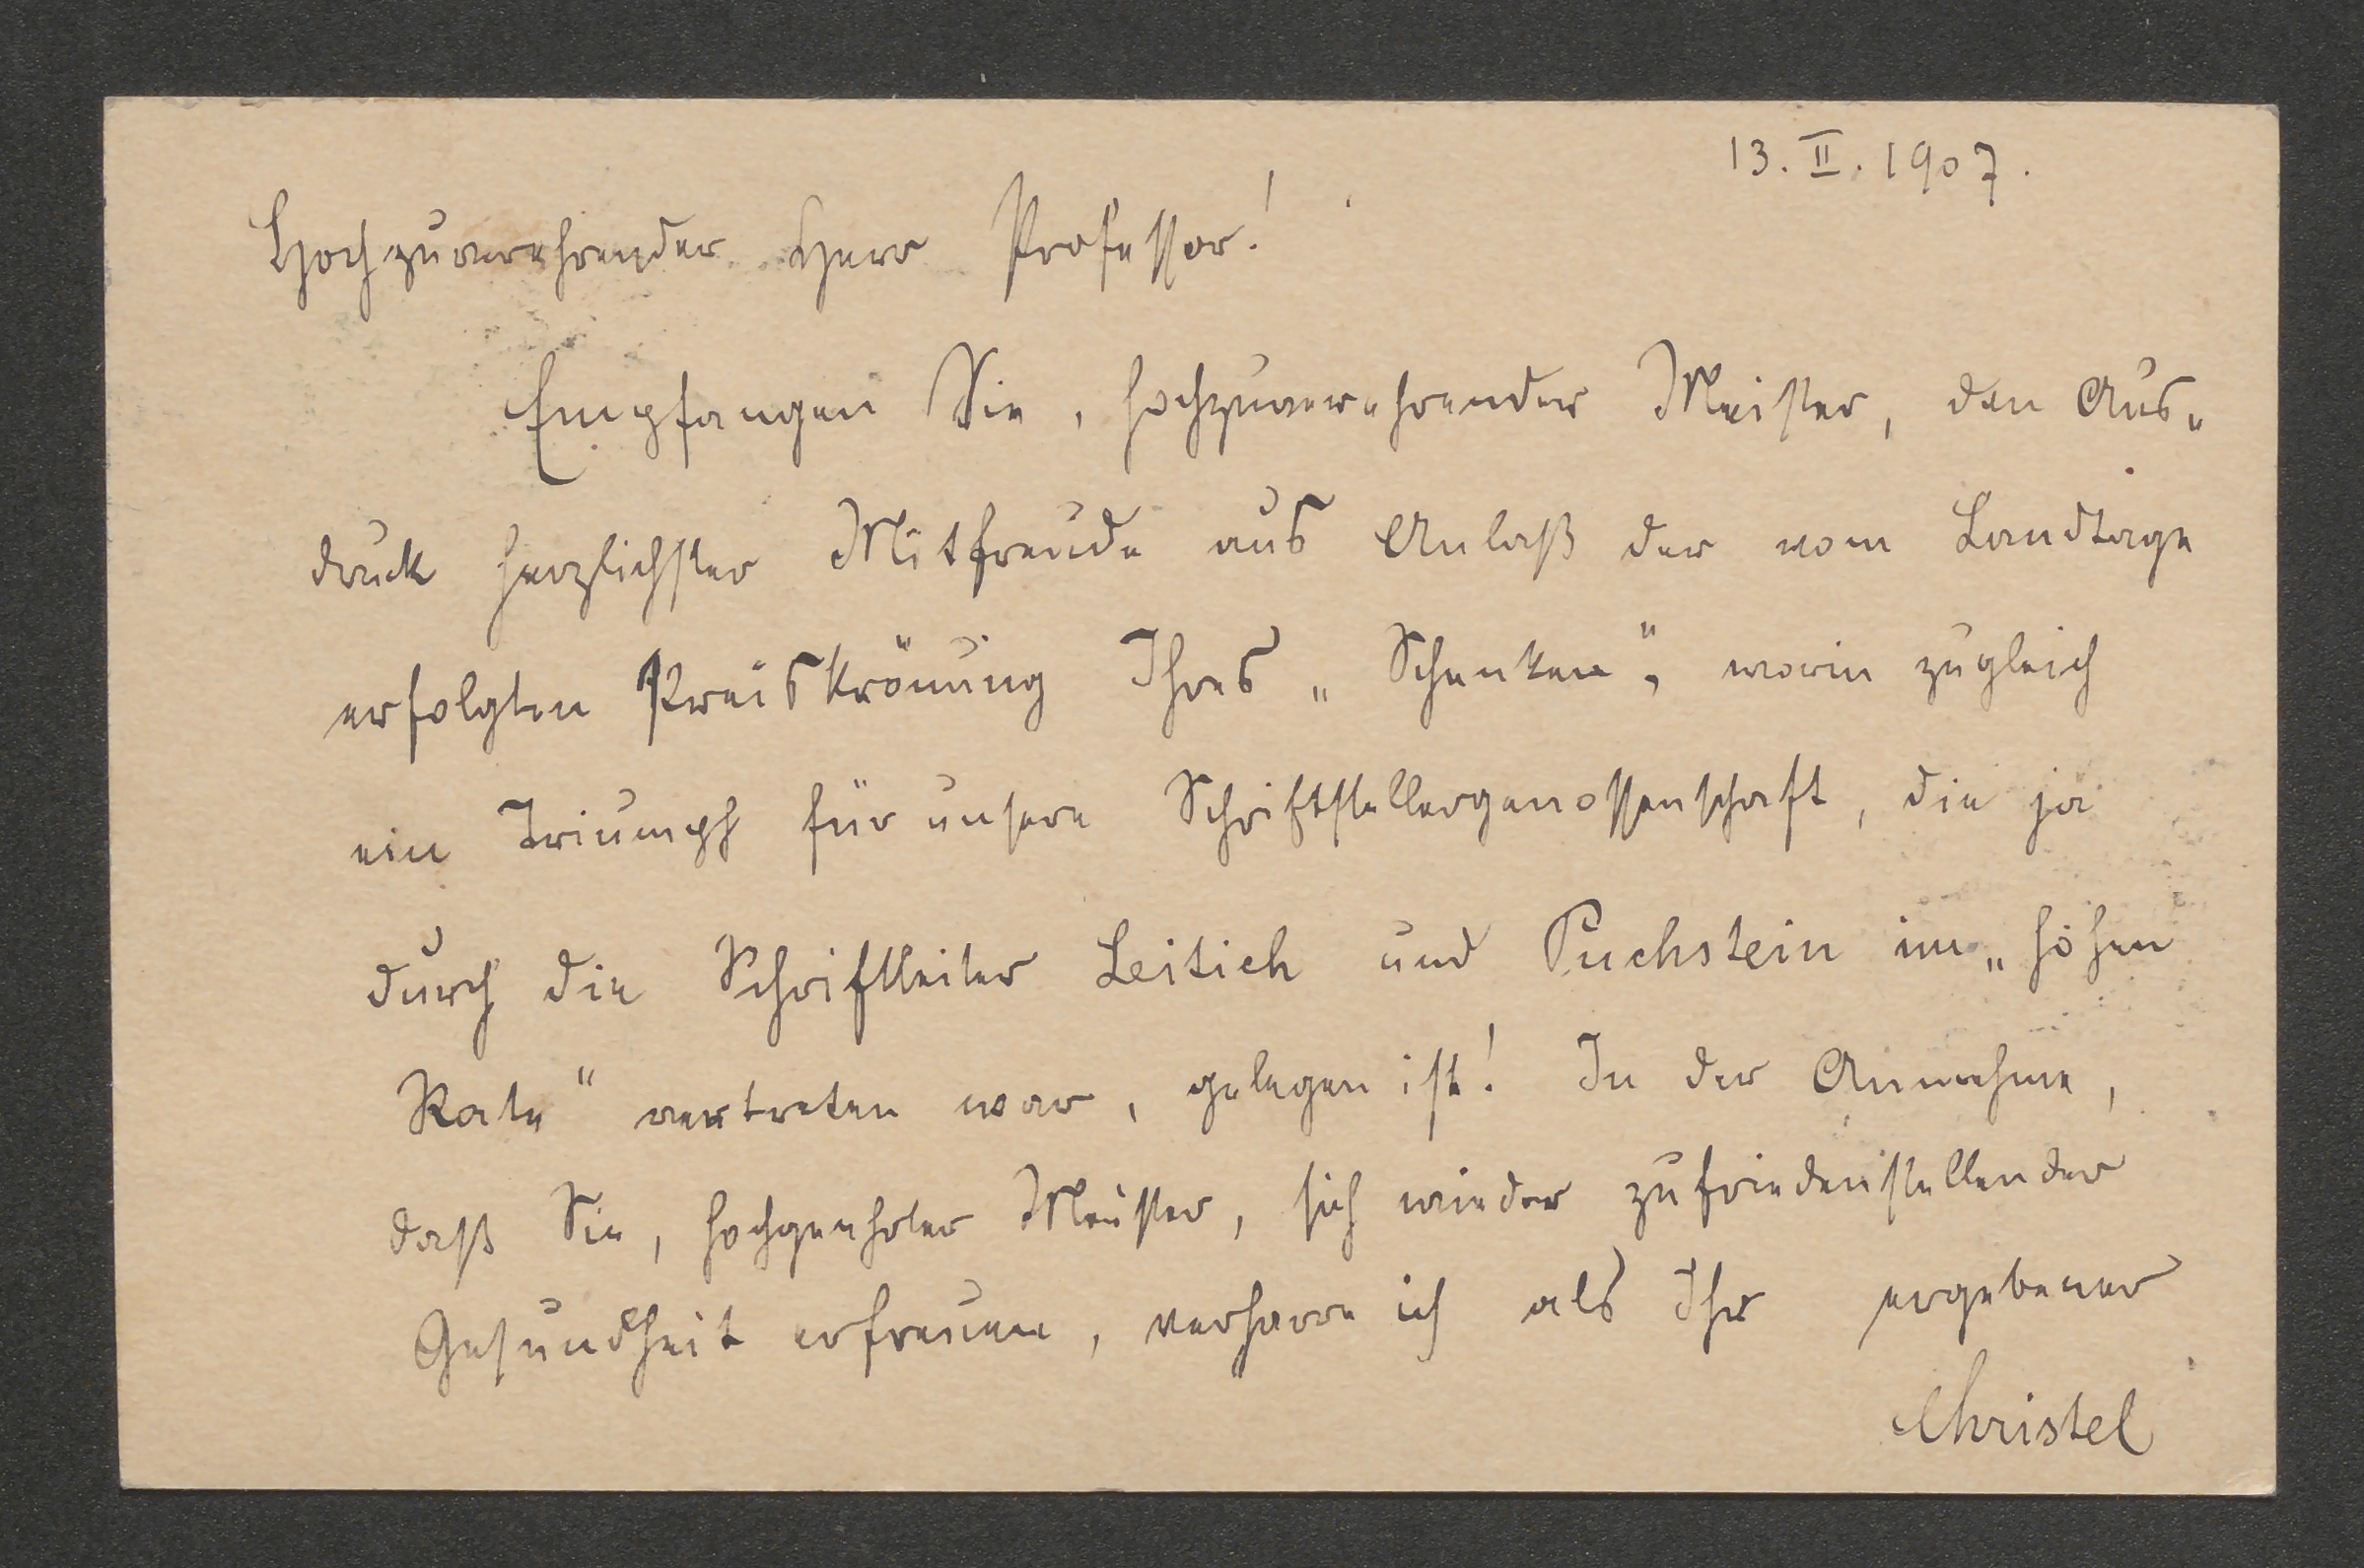 13. II. 1907.
Hochzuverehrender Herr Professor!
Empfangen Sie, hochzuverehrender Meister, den Aus-
druck herzlichster Mitfreude aus Anlaß der vom Landtage
erfolgten Preiskrönung Ihres „Schenken", worin zugleich
ein Triumph für unsere Schriftstellergenossenschaft, die ja
durch die Schriftleiter Leitich und Puchstein im „hohen
Rate" vertreten war, gelegen ist! In der Annahme,
daß Sie, hochgeehrter Meister, sich wieder zufriedenstellender
Gesundheit erfreuen, verharre ich als Ihr ergebener
Christel